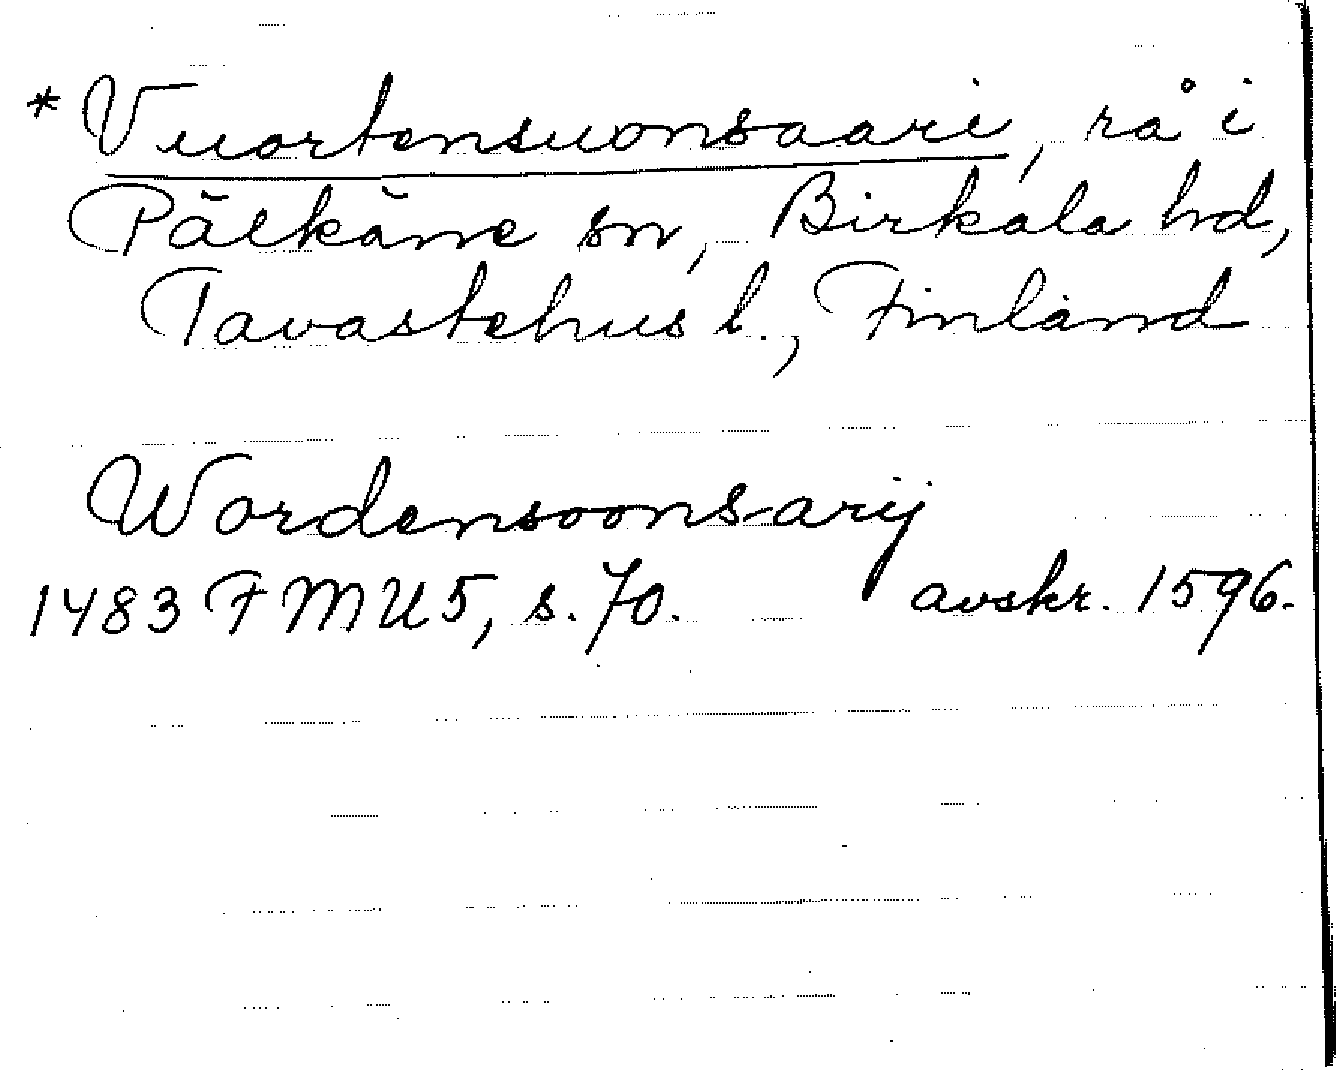 * Vuortensuonsaari, rå i
Pälkäne sn, Birkala hd,
Tavastehus l., Finland
Wordensoonsarij
1483 FMU5, s. 70. avskr. 1596.